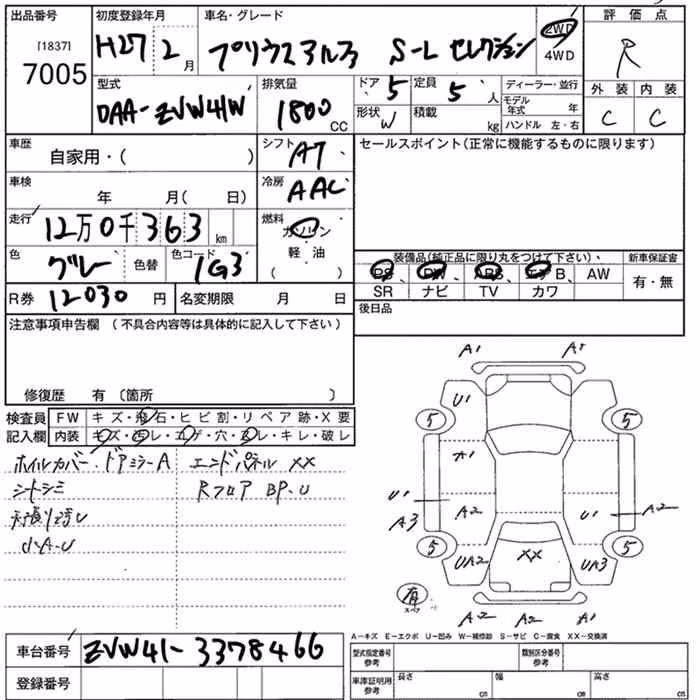 出品番号
[1837]
7005
初度登録年月
H27 2月
車名・グレード
プリウスアルファ S-L セレクション
2WD
4WD
評価点
R
外装 内装
C C
型式
DAA-ZVW41W
排気量
1800 CC
ドア 5
定員 5 人
形状 W
積載 kg
ディーラー・並行
モデル年式 年
ハンドル 左・右
車歴
自家用・( )
シフト
AT
セールスポイント(正常に機能するものに限ります)
車検
年 月( 日)
冷房
AAC
走行
12万0千363 km
燃料
ガソリン
軽・油
( )
色
グレー
色替
色コード
1G3
装備品(純正品に限り丸をつけて下さい)、
新車保証書
PS、 PW、 ABS、 エアB、 AW
SR ナビ TV カワ
有・無
R券 12030 円
名変期限 月 日
後日品
注意事項申告欄 (不具合内容等は具体的に記入して下さい)
修復歴 有 〔箇所 〕
検査員記入欄
FW キズ・飛石・ヒビ割・リペア跡・X要
内装 キズ・汚レ・コゲ・穴・スレ・キレ・破レ
ホイルカバー・ドアミラーA
エンドパネル XX
シートシミ
Rフロア BP・U
小A・U
A1 A1
U1
5 5
A1
U1
A3
A2
U1
A2
5 5
UA2
XX
UA3
有
スペア
A2 A2 A1
A-キズ E-エクボ U-凹み W-補修跡 S-サビ C-腐食 XX-交換済
車台番号
ZVW41-3378466
登録番号
型式指定番号
参考
類別区分番号
参考
車庫証明用
参考
長さ cm
幅 cm
高さ cm